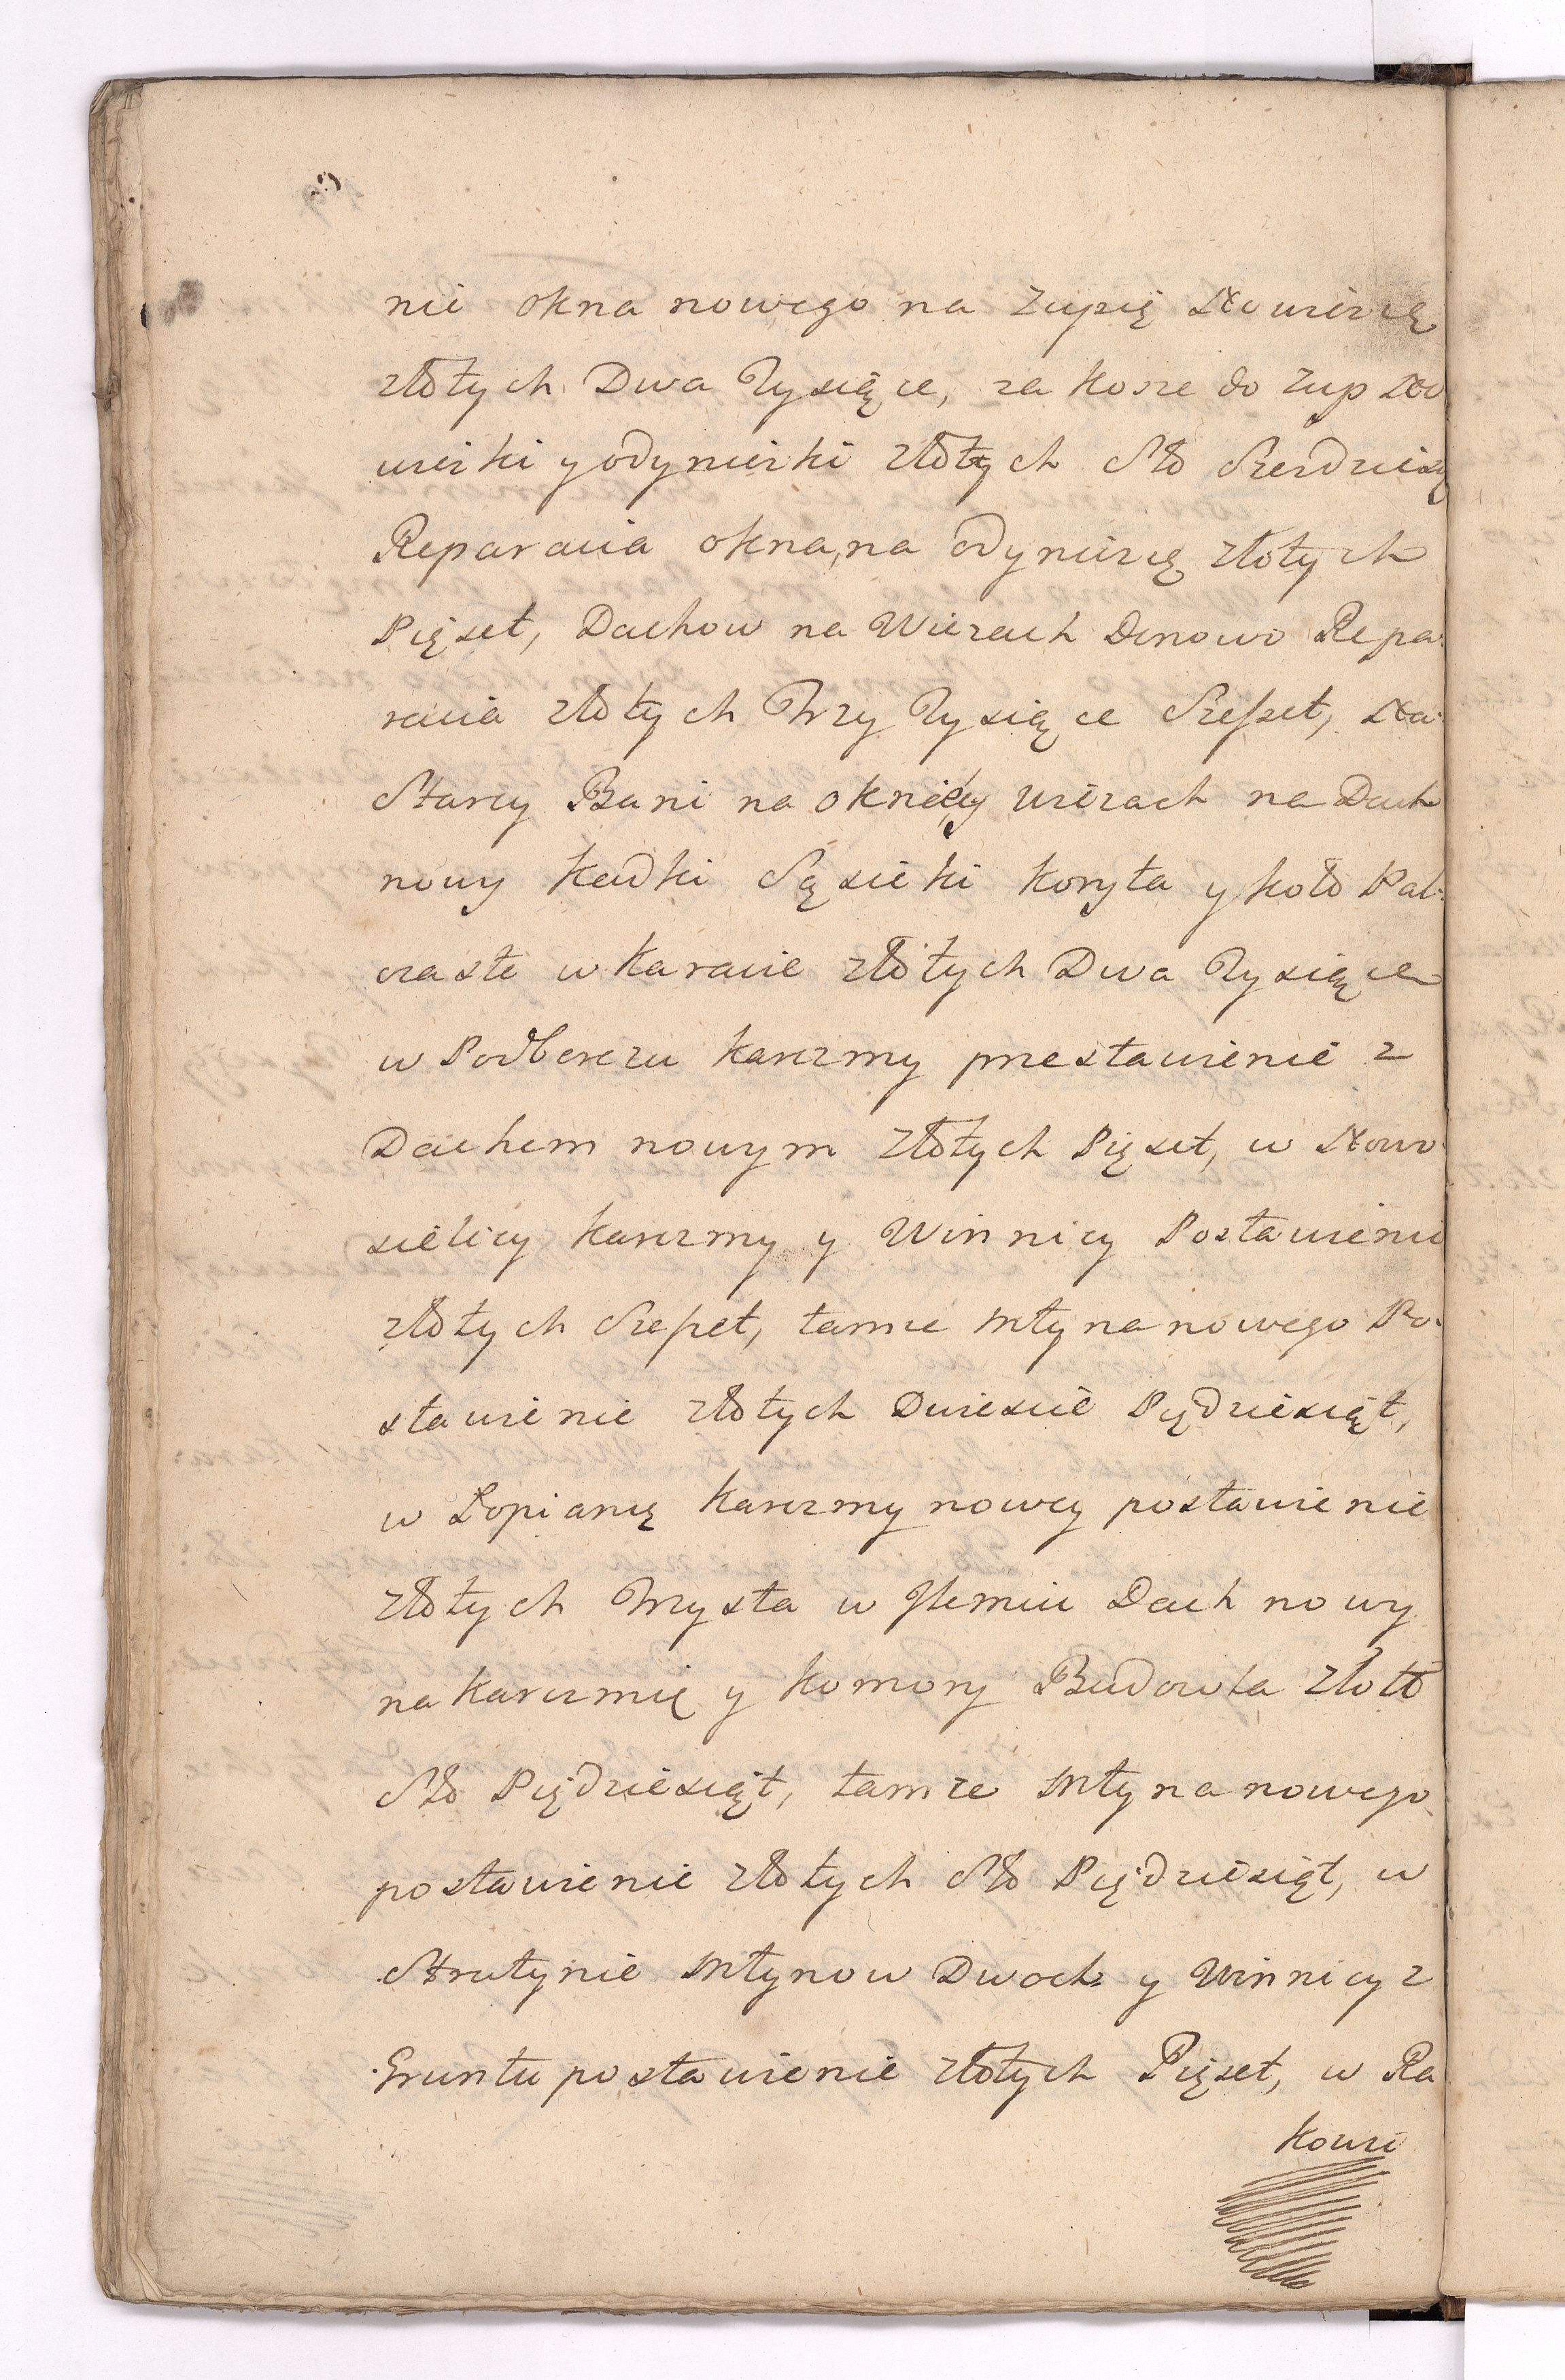 nie okna nowego na zupię Nowiczę
złotych Dwa Tysiące, za kosze do zup No
wiczki y odyniczki złotych Sto Szesdzies
Reparacia okna, na odyniczę złotych
Pięset, Dachow na Wiezach Denowo Repa
racia złotych Trzy Tysiące Szesset, Na
Starey Bani na okniey wiezach na Dach
nowy Kadki Sąsieki koryta y koło Pal-
czaste w Karacie złotych Dwa Tysiące
w Podberezu karczmy przestawienie z
Dachem nowym złotych Pięset, w Nowo
sielicy karczmy y Winnicy Postawieni
złotych Szesset, tamze młyna nowego Po-
stawienie złotych Dwiescie Pędziesiąt,
w Łopianę karczmy nowey postawienie
złotych Trzysta w Jlemiu Dach nowy
na karczmię y komory Budowla złott
Sto Piędziesiąt, tamze młyna nowego
postawienie złotych Sto Piędziesiąt, w
Strutynie młynow Dwoch y Winnicy z
Gruntu postawienie złotych Pięset, w Ra
kowi